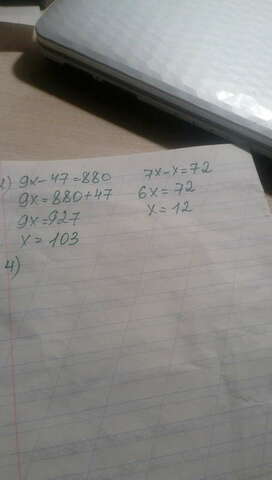 ) 9x-47=880
9x=880+47
9x=927
x=103
7x-x=72
6x=72
x=12
4)